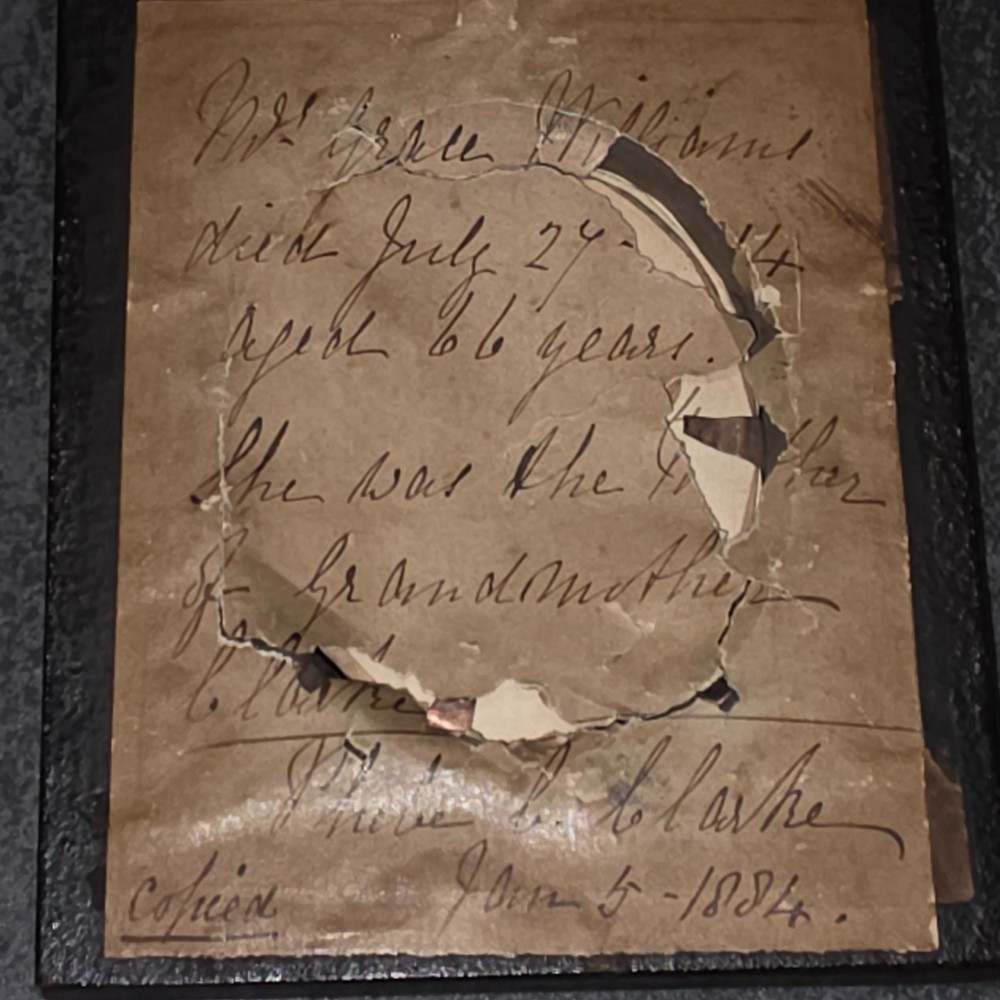 Mrs Grace Williams
died July 27- 14
aged 66 years.
She was the
of Grandmother
Clarke
C. Clarke
copied Jan 5 - 1884.